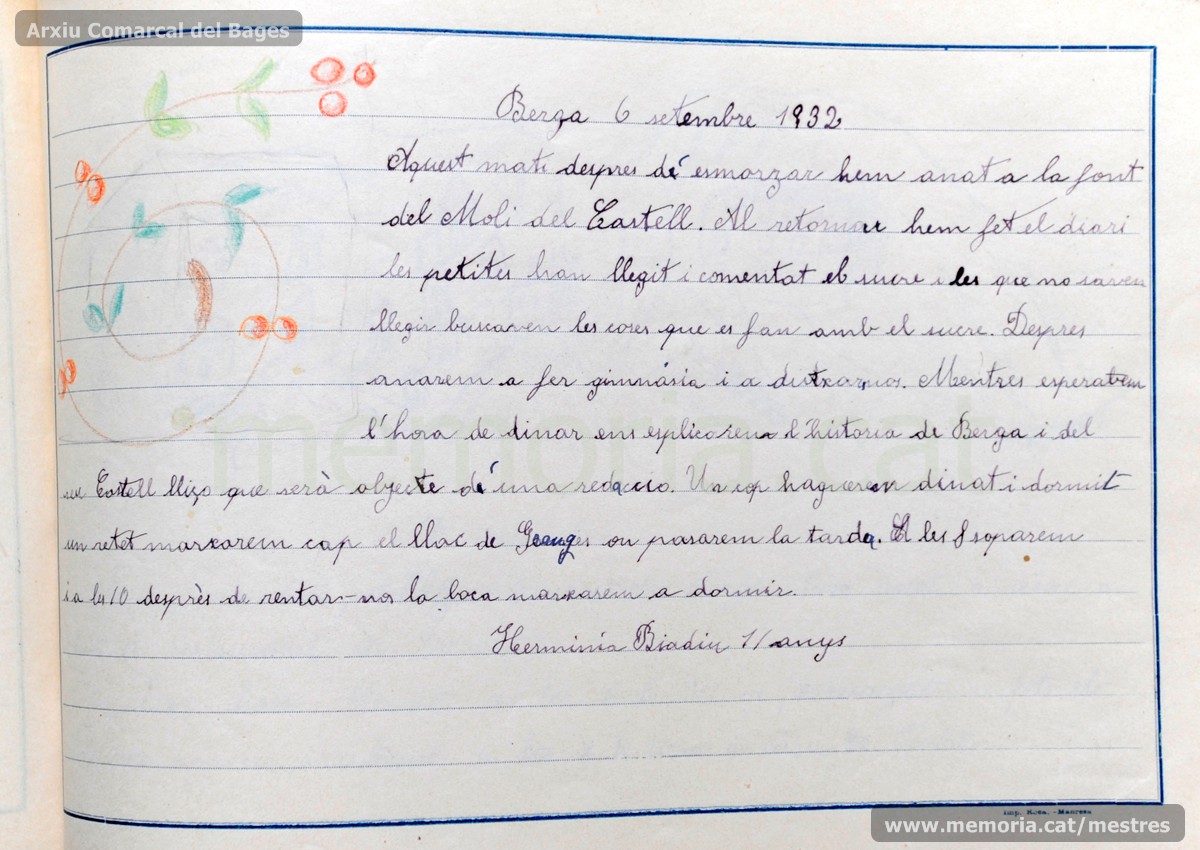 Arxiu Comarcal del Bages
Berga 6 setembre 1932
Aquest mati despres de esmorzar hem anat a la font
del Moli del Castell. Al retornar hem fet el diari
les petites han llegit i comentat el sucre i les que no saven
llegir buscaven les coses que es fan amb el sucre. Despres
anarem a fer gimnásia i a dutxarnos. Mentres esperavem
l'hora de dinar ens esplicaren l'historia de Berga i del
seu Castell lliço que serà objecte de una redaccio. Un cop haguerem dinat i dormit
un retet marxarem cap el llac de Graugés on pasarem la tarda. A les 8 soparem
i a les 10 desprès de rentar-nos la boca marxarem a dormir.
Herminia Biadiu 11 anys
memoria.cat
Imp. Roca. -Manresa
www.memoria.cat/mestres